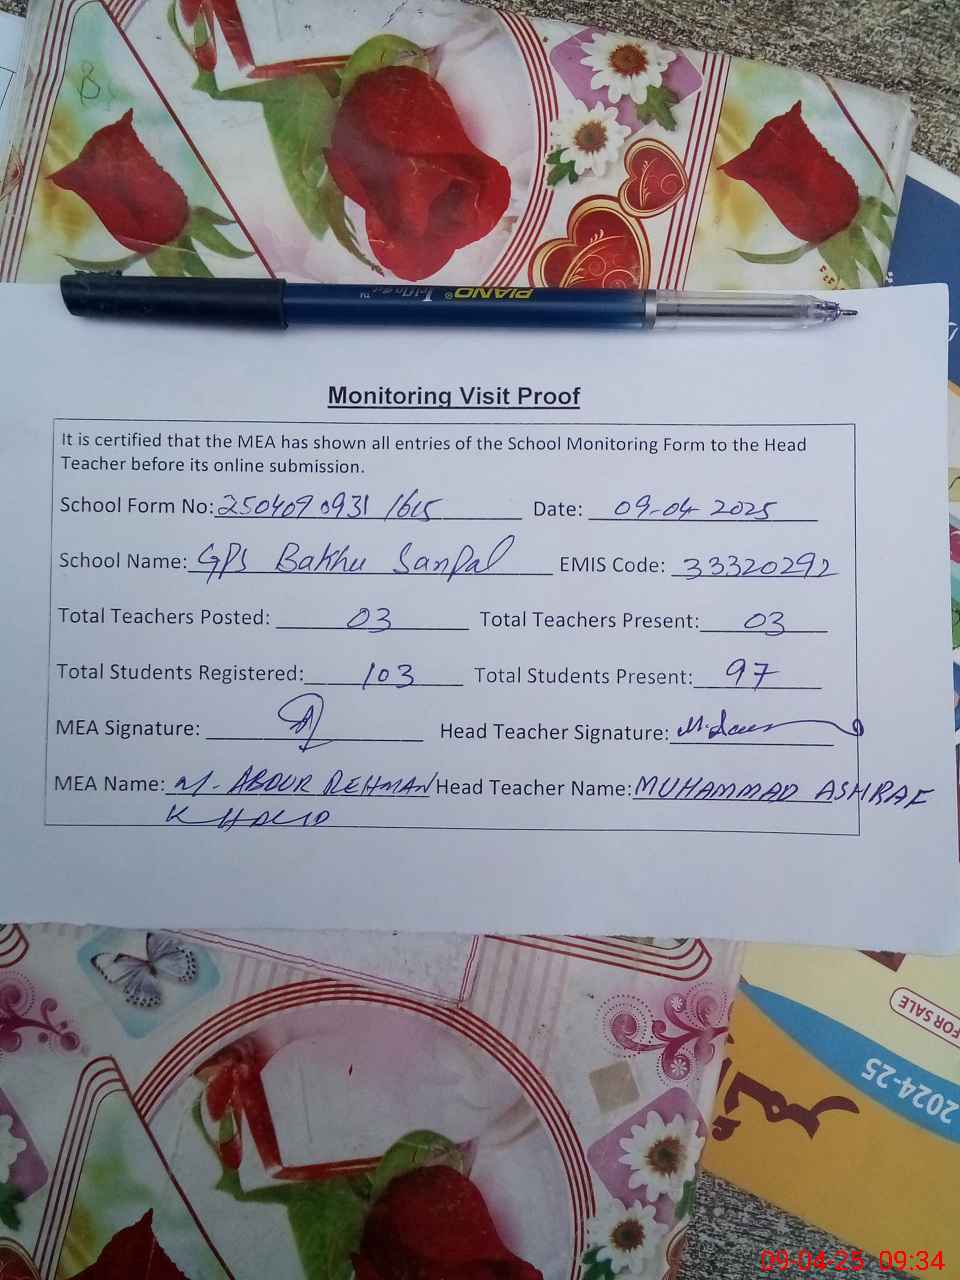 B
PIANO® Jellpen™
Monitoring Visit Proof
It is certified that the MEA has shown all entries of the School Monitoring Form to the Head
Teacher before its online submission.
School Form No: 250409 0931 1615 Date: 09-04-2025
School Name: GPS Bakhu Sanpal EMIS Code: 33320292
Total Teachers Posted: 03 Total Teachers Present: 03
Total Students Registered: 103 Total Students Present: 97
MEA Signature: Head Teacher Signature:
MEA Name: M. ABDUR REHMAN Head Teacher Name: MUHAMMAD ASHRAF
KHALID
FOR SALE
2024-25
09-04-25 09:34